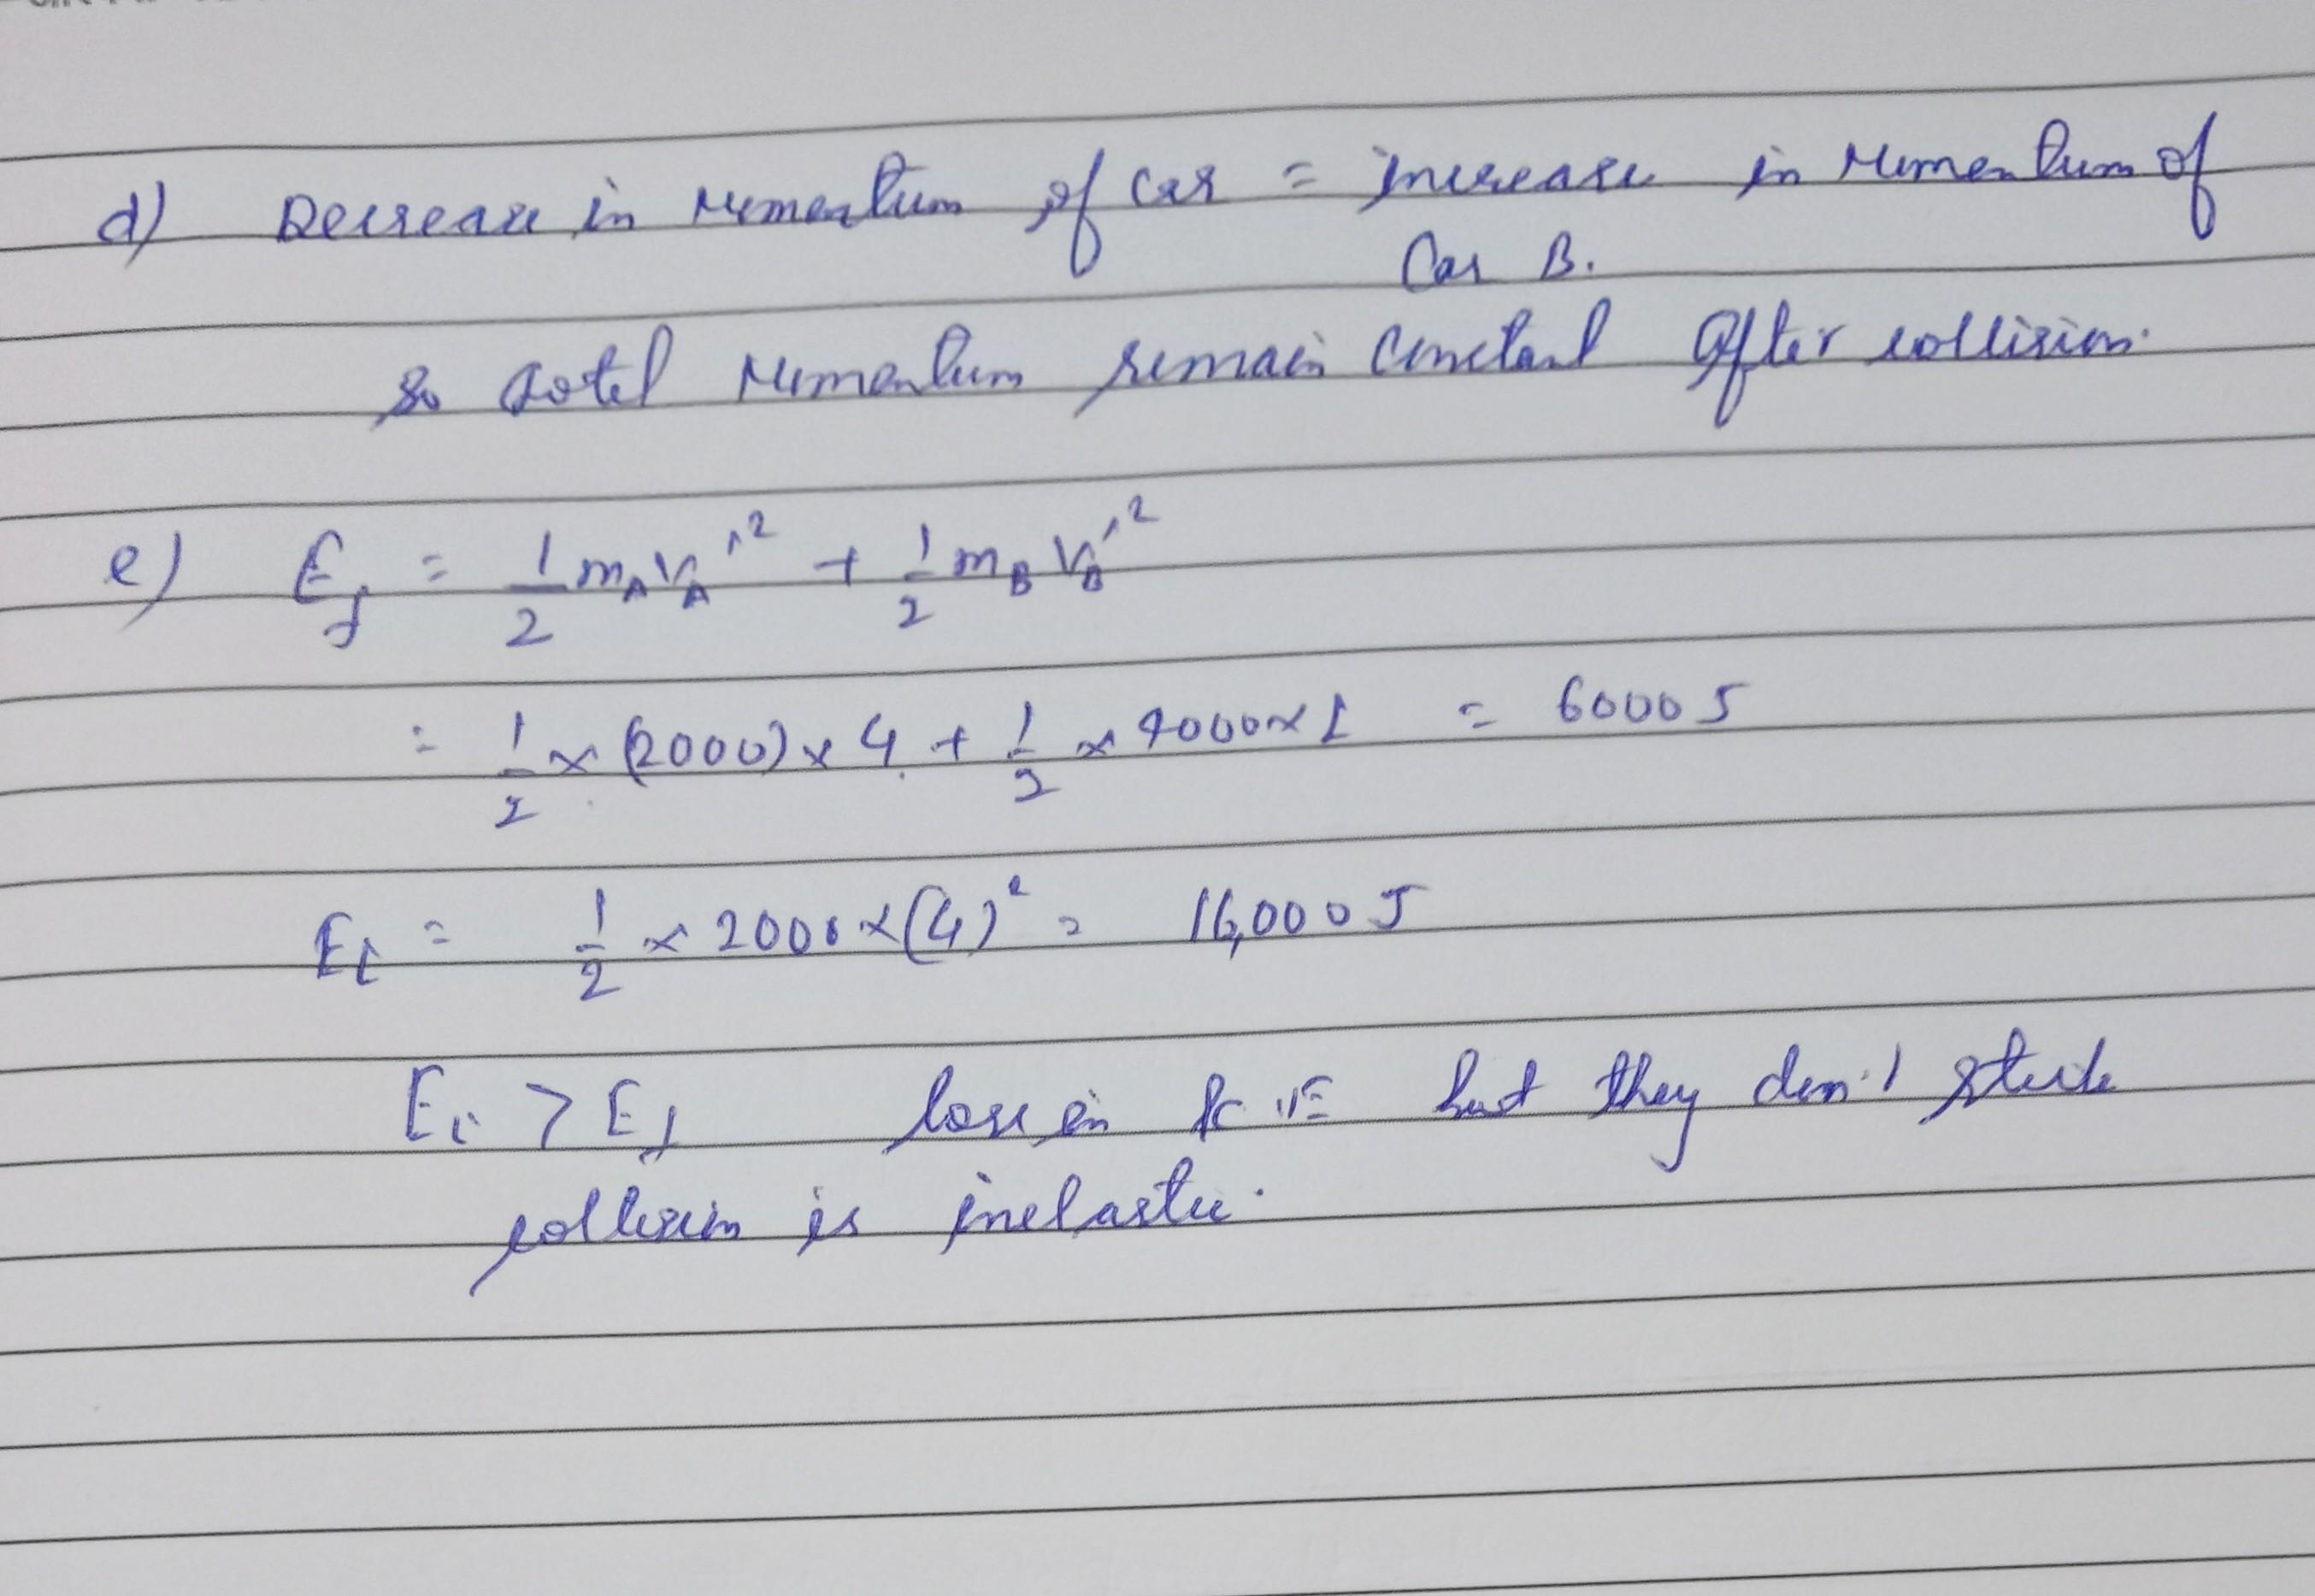 d) Decrease in momentum of car = increase in momentum of
Car B.
So total momentum remain constant after collision.
e) E_f = 1/2 m_A V_A'^2 + 1/2 m_B V_B'^2
= 1/2 × (2000) × 4 + 1/2 × 4000 × 1 = 6000 J
E_i = 1/2 × 2000 × (4)^2 = 16,000 J
E_i > E_f loss in K.E but they don't stick
collision is inelastic.